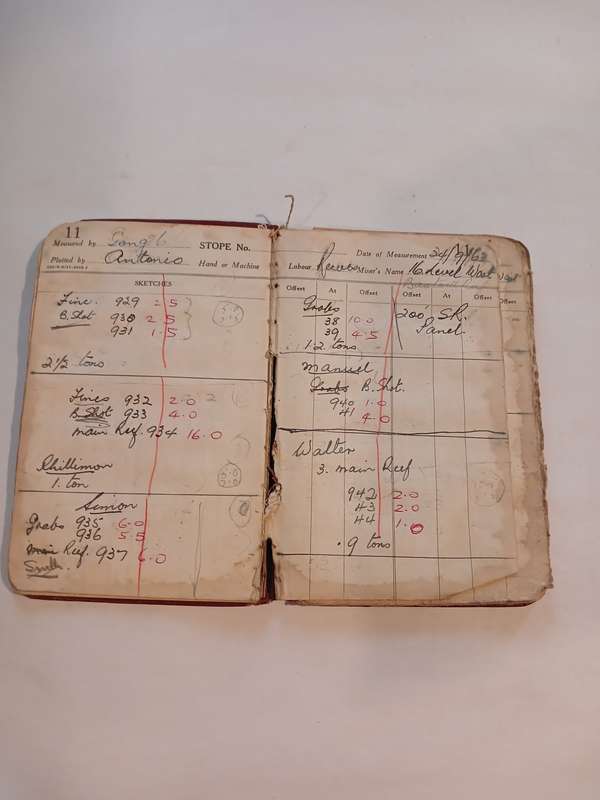 11
Measured by
STOPE No.
Plotted by Antonio Hand or Machine
SKETCHES
Fine. 929 2.5
B. Shot 930 2.5
931 1.5
2 1/2 tons
Fines 932 2.0
B. Shot 933 4.0
main Reef. 934 16.0
Chillimon
1. ton
Simon
Grabs 935 6.0
936 5.5
Main Reef. 937 6.0
Smith.
Date of Measurement 24/9/63
Labour Miner's Name 16 Level West
Offset At Offset Offset At Offset
Grabs 200' SR.
38 10.0 Panel.
39 4.5
1.2 tons
Manuel
Grabs B. Shot.
940 1.0
41 4.0
Walter
3. main Reef
942 2.0
43 2.0
44 1.0
.9 tons